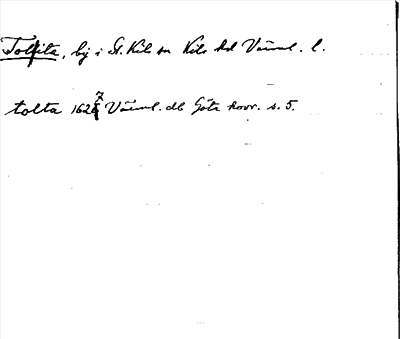 Tolfita, by i St. Kils sn Kils hd Värml. l.
tolta 1627 Värml. db Göta hovr. s. 5.